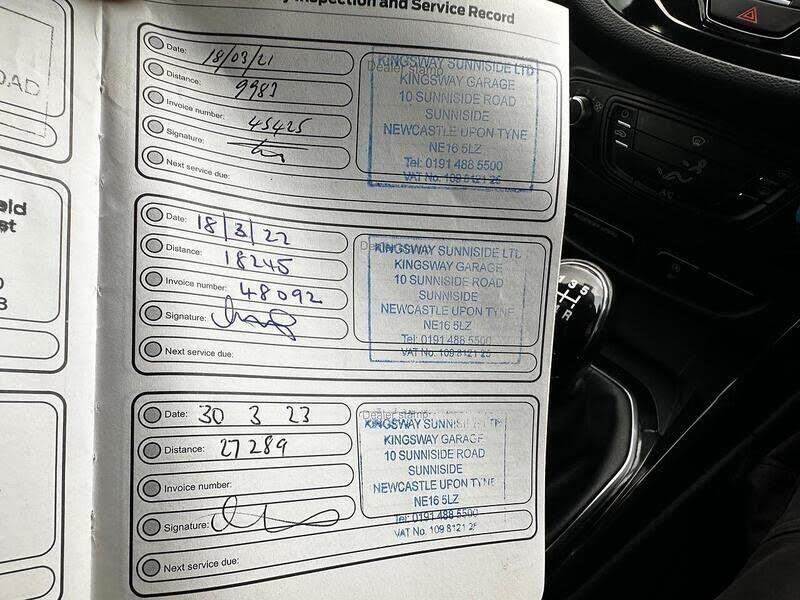 Inspection and Service Record
Date: 18/03/21
Distance: 9983
Invoice number: 45425
Signature:
Next service due:
Dealer stamp
KINGSWAY SUNNISIDE LTD
KINGSWAY GARAGE
10 SUNNISIDE ROAD
SUNNISIDE
NEWCASTLE UPON TYNE
NE16 5LZ
Tel: 0191 488 5500
VAT No. 109 8121 25
Date: 18/3/22
Distance: 18245
Invoice number: 48092
Signature:
Next service due:
Dealer
KINGSWAY SUNNISIDE LTD
KINGSWAY GARAGE
10 SUNNISIDE ROAD
SUNNISIDE
NEWCASTLE UPON TYNE
NE16 5LZ
Tel: 0191 488 5500
VAT No. 109 8121 25
Date: 30 3 23
Distance: 27289
Invoice number:
Signature:
Next service due:
Dealer stamp
KINGSWAY SUNNISIDE LTD
KINGSWAY GARAGE
10 SUNNISIDE ROAD
SUNNISIDE
NEWCASTLE UPON TYNE
NE16 5LZ
Tel: 0191 488 5500
VAT No. 109 8121 25
3 5
R